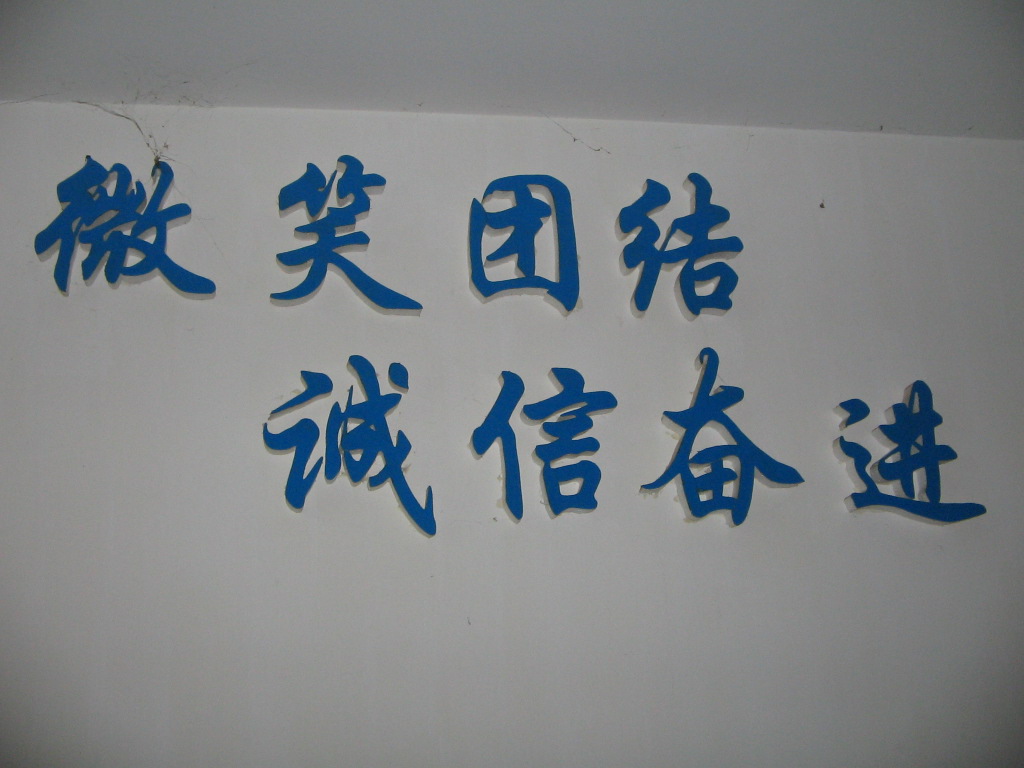 微笑团结
诚信奋进